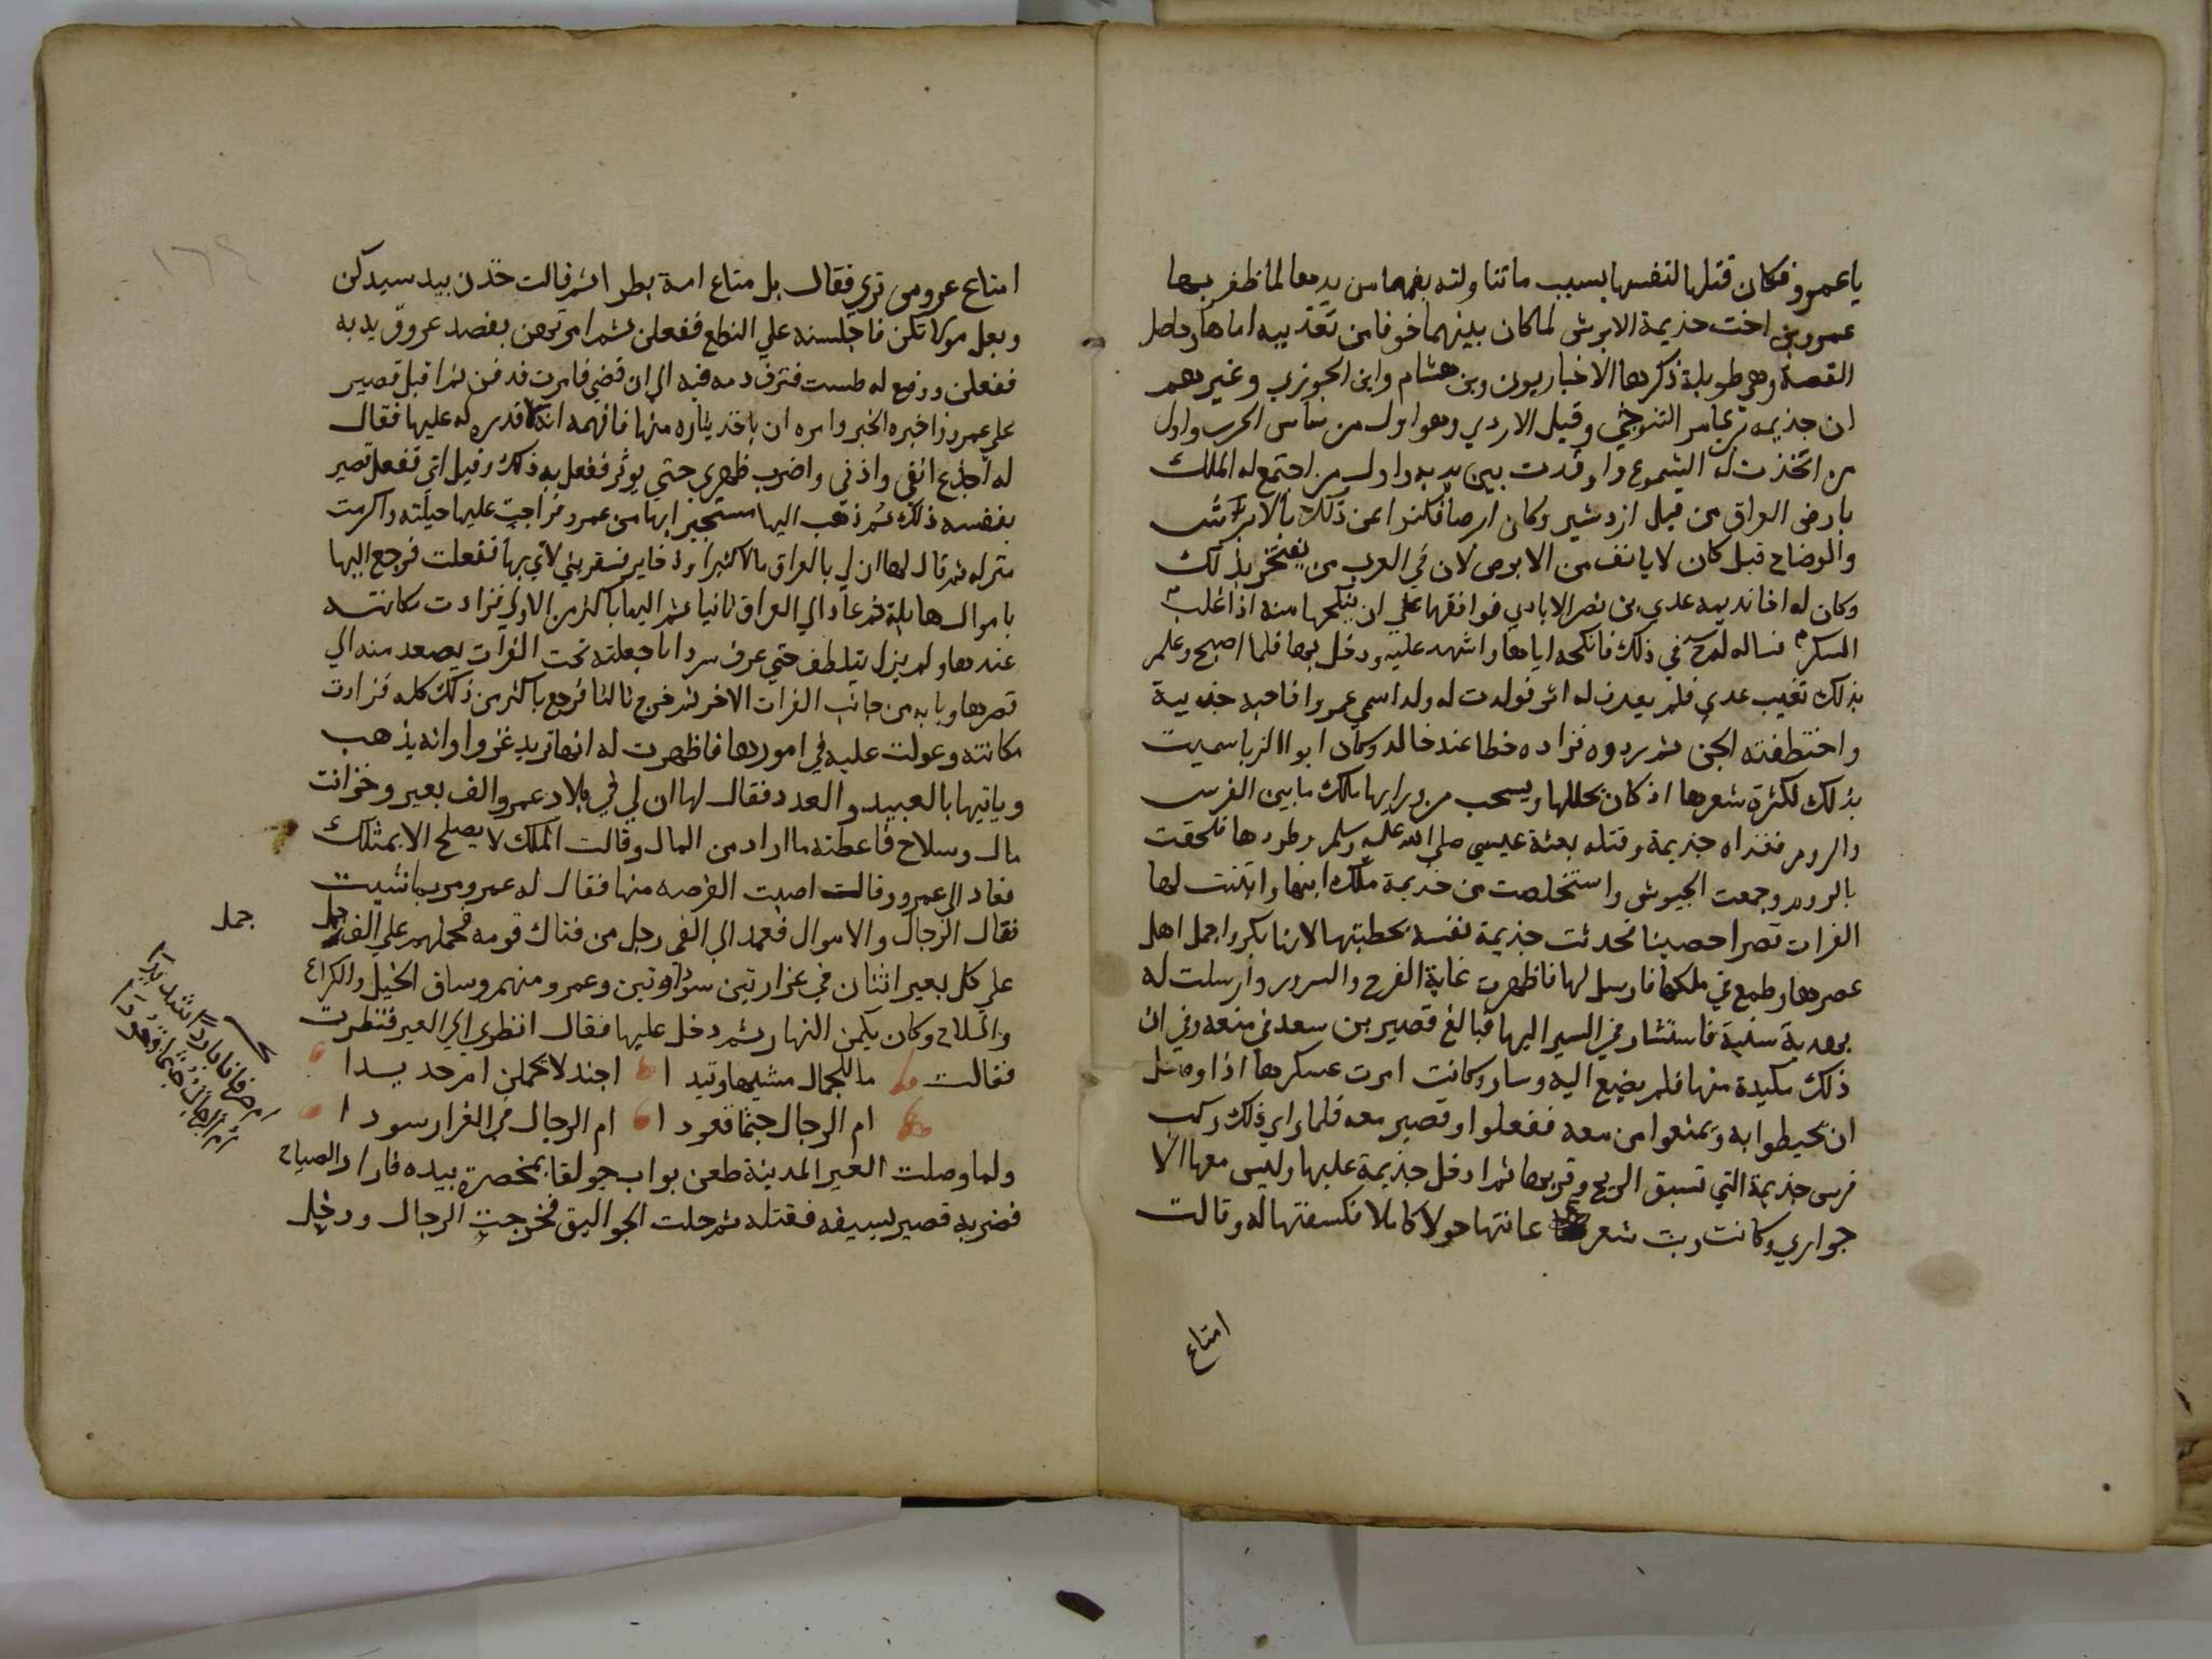 يا عمرو فكان قتلها لنفسها بسبب ما تناولته بفمها من يدها لما ظفر بها
عمرو بن اخت جذيمة الابرش لما كان بينهما خوفا من تعذيبه اياها وحاصل
القصة وهي طويلة ذكرها الاخباريون وبن هشام وابن الجوزي وغيرهم
ان جذيمه بن عامر التنوخي وقيل الازدي وهو اول من ساس الحرب واول
من اتخذت له الشموع واوقدت بين يديه واول من اجتمع له الملك
بارض العراق من قبل ازدشير وكان ابرصا فكنوا عن ذلك بالابرش
والوضاح قيل كان لا يانف من الابرص لان في العرب من يفتخر بذلك
وكان له اخا نديمه عدي بن نصر الايادي فوافقها علي ان ينكحها منه اذا غلب
السكر فساله في ذلك فانكحه اياها واشهد عليه ودخل بها فلما اصبح وعلم
بذلك تغيب عدي فلم يعرف له اثر فولدت له ولدا سمي عمروا فاحبه جذيمة
واختطفته الجن ثم ردوه فزاده حظا عند خاله وكان ابوا الزبا سميت
بذلك لكثرة شعرها اذ كان يجللها ويسحب من ورايها مالك ما بين الفرس
والروم فغزاه جذيمة وقتله بعثة عيسي صلي الله عليه وسلم وطردها فلحقت
بالروم وجمعت الجيوش واستخلصت من جذيمة ملك ابيها وابتنت لها
الفرات قصرا حصينا فحدثت جذيمة نفسه بخطبتها لانها بكر واجمل اهل
عصرها وطمع في ملكها فارسل لها فاظهرت غاية الفرح والسرور وارسلت له
بهدية سنية فاستشار في السير اليها فبالغ قصير بن سعد في منعه وفي ان
ذلك مكيدة منها فلم يضيع اليه وسار وكانت امرت عسكرها اذا وصل
ان يحيطوا به ويمنعوا من معه ففعلوا وقصير معه فلما راي ذلك ركب
فرس جذيمة التي تسبق الريح وقربها ثم ادخل جذيمة عليها وليس معها الا
جواري وكانت ربت شعر عانتها حولا كاملا فكسفتها له وقالت
امتاع
امتاع عروس تري فقال بل متاع امة بظرا ثم قالت خذن بيد سيدكن
وبعل مولاتكن فاجلسنه علي النطع ففعلن ثم امرتهن بفصد عروق يديه
ففعلن ووضع له طست فنزف دمه فيه الي ان قضي فامرت فدفن ثم اقبل قصير
علي عمرو واخبره الخبر وامره ان ياخذ بثاره منها فافهمه انه لا قدره له عليها فقال
له اجدع انفي واذني واضرب ظهري حتي يوثر ففعل به ذلك وقيل ابي ففعل قصير
بنفسه ذلك ثم ذهب اليها مستجيرا بها من عمرو فراجت عليها حيلته واكرمت
منزله ثم قال لها ان لي بالعراق مالا كثيرا وذخاير فسفريني لاتي بها ففعلت فرجع اليها
باموال هايلة ثم عاد الي العراق ثانيا ثم اليها باكثر من الاولي فزادت مكانته
عندها ولم يزل يتلطف حتي عرف سردابا جعلته تحت الفرات يصعد منه الي
قصرها وبابه من جانب الفرات الاخر ثم خرج ثالثا فرجع باكثر من ذلك كله فزادت
مكانته وعولت عليه في امورها فاظهرت له انها تريد غزوا وانه يذهب
وياتيها بالعبيد والعدد فقال لها ان لي في بلاد عمرو الف بعير وخزانت
مال وسلاح فاعطته ما اراد من المال وقالت الملك لا يصلح الا بمثلك
فعاد الي عمرو وقال اصبت الفرصه منها فقال له عمرو مر بما شيت
فقال الرجال والاموال فعمد الي الفي رجل من فتاك قومه فحملهم علي الف جمل
جمل
علي كل بعير اثنان في غرارتين سوداوتين وعمرو منهم وساق الخيل والكراع
والسلاح وكان يكمن النهار ثم دخل عليها فقال انظري الي العير فنظرت
فقالت ما للجمال مشيها وئيدا اجندلا يحملن ام حديدا
ام الرجال جثما قعودا ام الرجال في الغرار سودا
ام صرفانا باردا شديدا
ام الرجال جثما قعودا
ولما وصلت العير المدينة طعن بواب جولقا بمخصرة بيده فاراد الصياح
فضربه قصير بسيفه فقتله ثم حلت الجواليق فخرجت الرجال ودخل